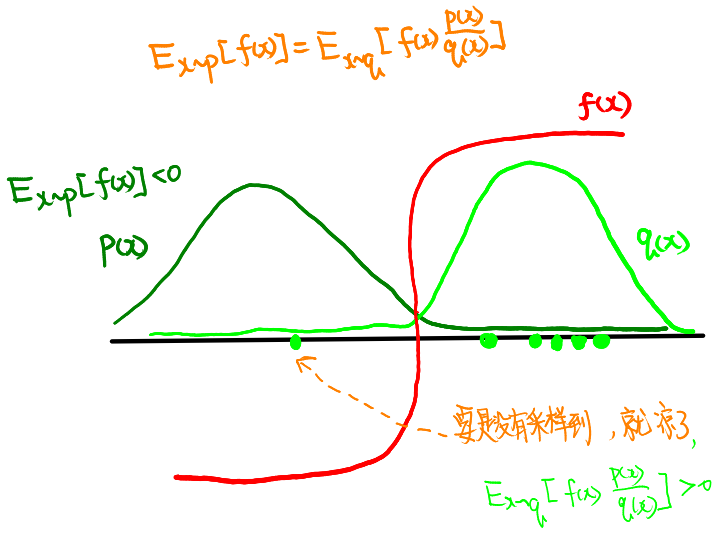 E_{x~p}[f(x)] = E_{x~q}[f(x) p(x)/q(x)]
f(x)
E_{x~p}[f(x)]<0
p(x)
q(x)
要是没有采样到，就凉了,
E_{x~q}[f(x) p(x)/q(x)]>0